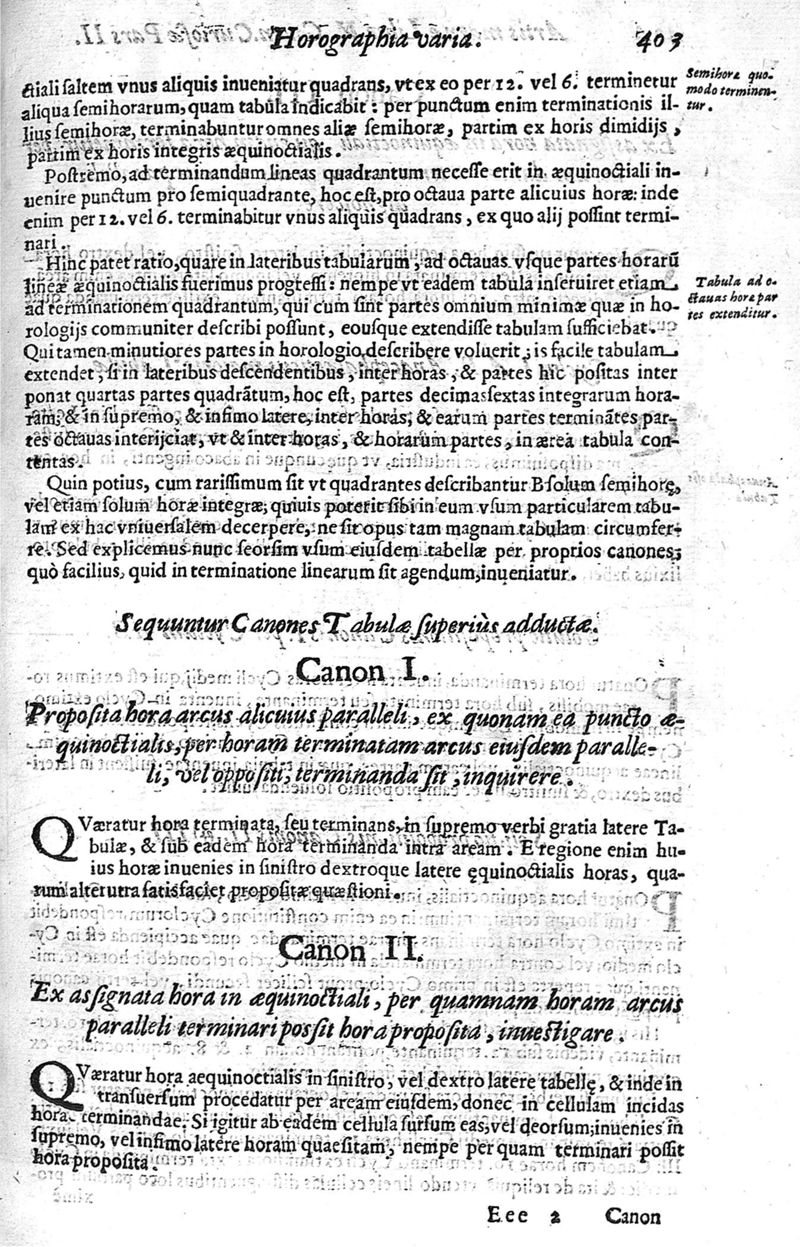 Horographia varia. 403
ctiali saltem vnus aliquis inueniatur quadrans, vt ex eo per 12. vel 6. terminetur
aliqua semihorarum, quam tabula indicabit: per punctum enim terminationis il-
lius semihoræ, terminabuntur omnes aliæ semihoræ, partim ex horis dimidijs,
partim ex horis integris æquinoctialis.
Semihoræ quo-
modo terminen-
tur.
Postremo, ad terminandum lineas quadrantum necesse erit in æquinoctiali in-
uenire punctum pro semiquadrante, hoc est, pro octaua parte alicuius horæ: inde
enim per 12. vel 6. terminabitur vnus aliquis quadrans, ex quo alij possint termi-
nari.
Hinc patet ratio, quare in lateribus tabularum, ad octauas vsque partes horarū
lineæ æquinoctialis fuerimus progressi: nempe vt eadem tabula inseruiret etiam
ad terminationem quadrantum, qui cum sint partes omnium minimæ quæ in ho-
rologijs communiter describi possunt, eousque extendisse tabulam sufficiebat.
Tabula ad o-
ctauas horæ par
tes extenditur.
Qui tamen minutiores partes in horologio describere voluerit, is facile tabulam
extendet, si in lateribus descendentibus, inter horas, & partes hic positas inter
ponat quartas partes quadrātum, hoc est, partes decimassextas integrarum hora-
ram; & in supremo, & infimo latere, inter horas; & earum partes terminātes par-
tes octauas interijciat, vt & inter horas, & horarum partes, in area tabula con-
tentas.
Quin potius, cum rarissimum sit vt quadrantes describantur B solum semihoræ,
vel etiam solum horæ integræ; quiuis poterit sibi in eum vsum particularem tabu-
lam ex hac vniuersalem decerpere, ne sit opus tam magnam tabulam circumfer-
re. Sed explicemus nunc seorsim vsum eiusdem tabellæ per proprios canones;
quò facilius, quid in terminatione linearum sit agendum, inueniatur.
Sequuntur Canones Tabulæ superiùs adductæ.
Canon I.
Proposita hora arcus alicuius paralleli, ex quonam ea puncto æ-
quinoctialis, per horam terminatam arcus eiusdem paralle-
li, vel oppositi, terminanda sit, inquirere.
QVæratur hora terminata, seu terminans, in supremo verbi gratia latere Ta-
bulæ, & sub eadem hora terminanda intra aream. E regione enim hu-
ius horæ inuenies in sinistro dextroque latere ęquinoctialis horas, qua-
rum alterutra satisfaciet propositæ quæstioni.
Canon II.
Ex assignata hora in æquinoctiali, per quamnam horam arcus
paralleli terminari possit hora proposita, inuestigare.
QVæratur hora aequinoctialis in sinistro, vel dextro latere tabellę, & inde in
transuersum procedatur per aream eiusdem, donec in cellulam incidas
horæ terminandae. Si igitur ab eadem cellula sursum eas, vel deorsum; inuenies in
supremo, vel infimo latere horam quaesitam, nempe per quam terminari possit
hora proposita.
Eee 2 Canon